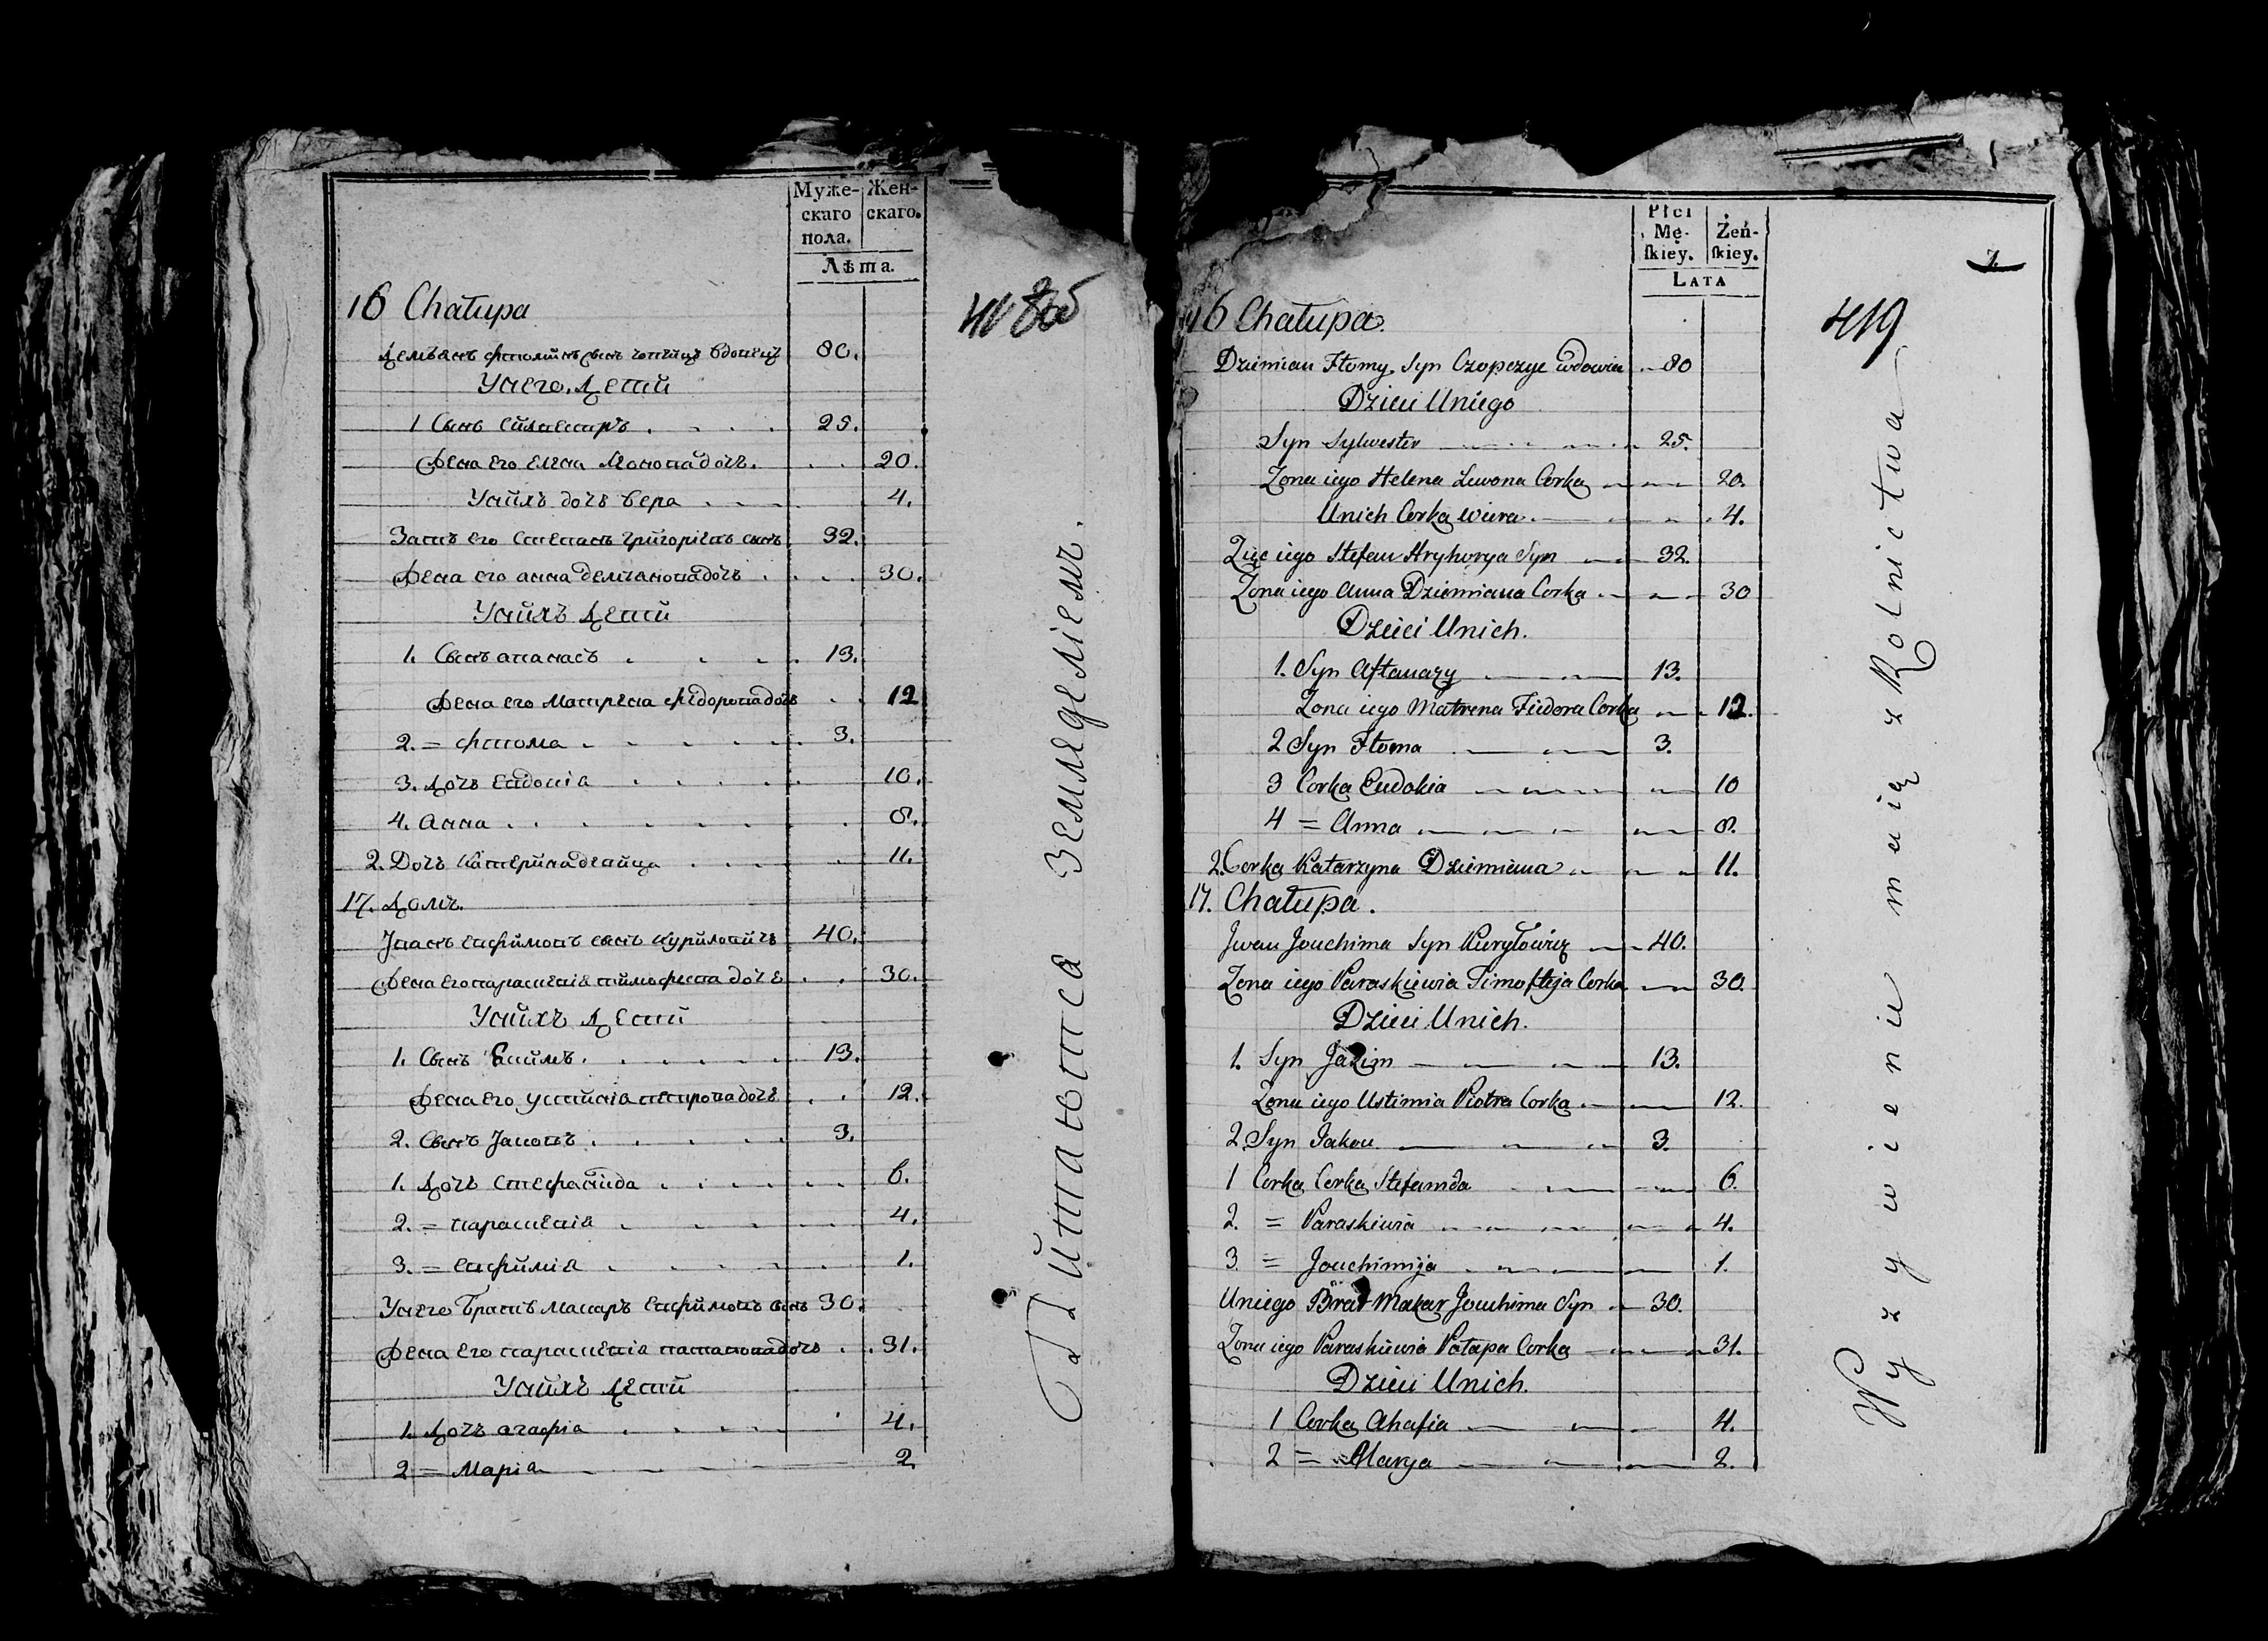 Муже-
скаго
пола.
Жен-
скаго.
Лѣта.
16 Chałupa
Демьянъ Фтоминъ сынъ Чопчицъ вдовецъ 80.
У него Дети
1 Сынъ Силвестръ 25.
Жена его Елена Леонова дочь. 20.
У нихъ дочь Вера 4.
Зять его Степанъ Григоріевъ сынъ 32.
Жена его Анна Демянова дочь 30.
У нихъ Дети
1. Сынъ Апанасъ 13.
Жена его Матрена Фёдорова дочь 12
2. = Фтома 3.
3. Дочь Евдокія 10.
4. Анна 8.
2. Дочь Катерина девица 11.
17. Домъ.
Іванъ Евфимовъ сынъ Куриловичъ 40.
Жена его Параскевія Тимофеева дочь 30.
У нихъ Дети
1. Сынъ Екимъ. 13.
Жена его Устинія Петрова дочь 12.
2. Сынъ Іаковъ 3.
1. Дочь Стефанида 6.
2. = Параскевія 4.
3. = Евфимія 1.
У него Братъ Макаръ Евфимовъ сынъ 30.
Жена его Параскевія Патапова дочь 31.
У нихъ Дети
1. Дочь Агафія 4.
2 = Марія 2.
Питаютса Земледеліемъ.
Płci
Mę-
ſkiey.
Żeń-
ſkiey.
LATA
7.
419
16 Chałupa
Dziemian Ftomy Syn Czopczyc wdowiec 80
Dzieci Uniego
Syn Sylwester 25.
Zona iego Helena Lewona Corka 20.
Unich Corka Wiera 4.
Zięć iego Stefan Hryhorya Syn 32.
Zona iego Anna Dziemiana Corka 30
Dzieci Unich.
1. Syn Aftanazy 13.
Zona iego Matrena Fiedora Corka 12.
2 Syn Ftoma 3.
3 Corka Eudokia 10
4 = Anna 8.
2. Corka Katarzyna Dziemiana 11.
17. Chałupa.
Jwan Jouchima Syn Kuryłowicz 40.
Zona iego Paraskiewia Timoftieja Corka 30.
Dzieci Unich.
1. Syn Jakim 13.
Zona iego Ustimia Piotra Corka 12.
2. Syn Iakou 3.
1 Corka Corka Stefanida 6.
2. = Paraskiewia 4.
3 = Jouchimija 1.
Uniego Brat Makar Jouchima Syn 30.
Zona iego Paraskiewia Patapa Corka 31.
Dzieci Unich.
1 Corka Ahafia 4.
2 = Marya 2.
Wyzwienie maią z Rolnictwa